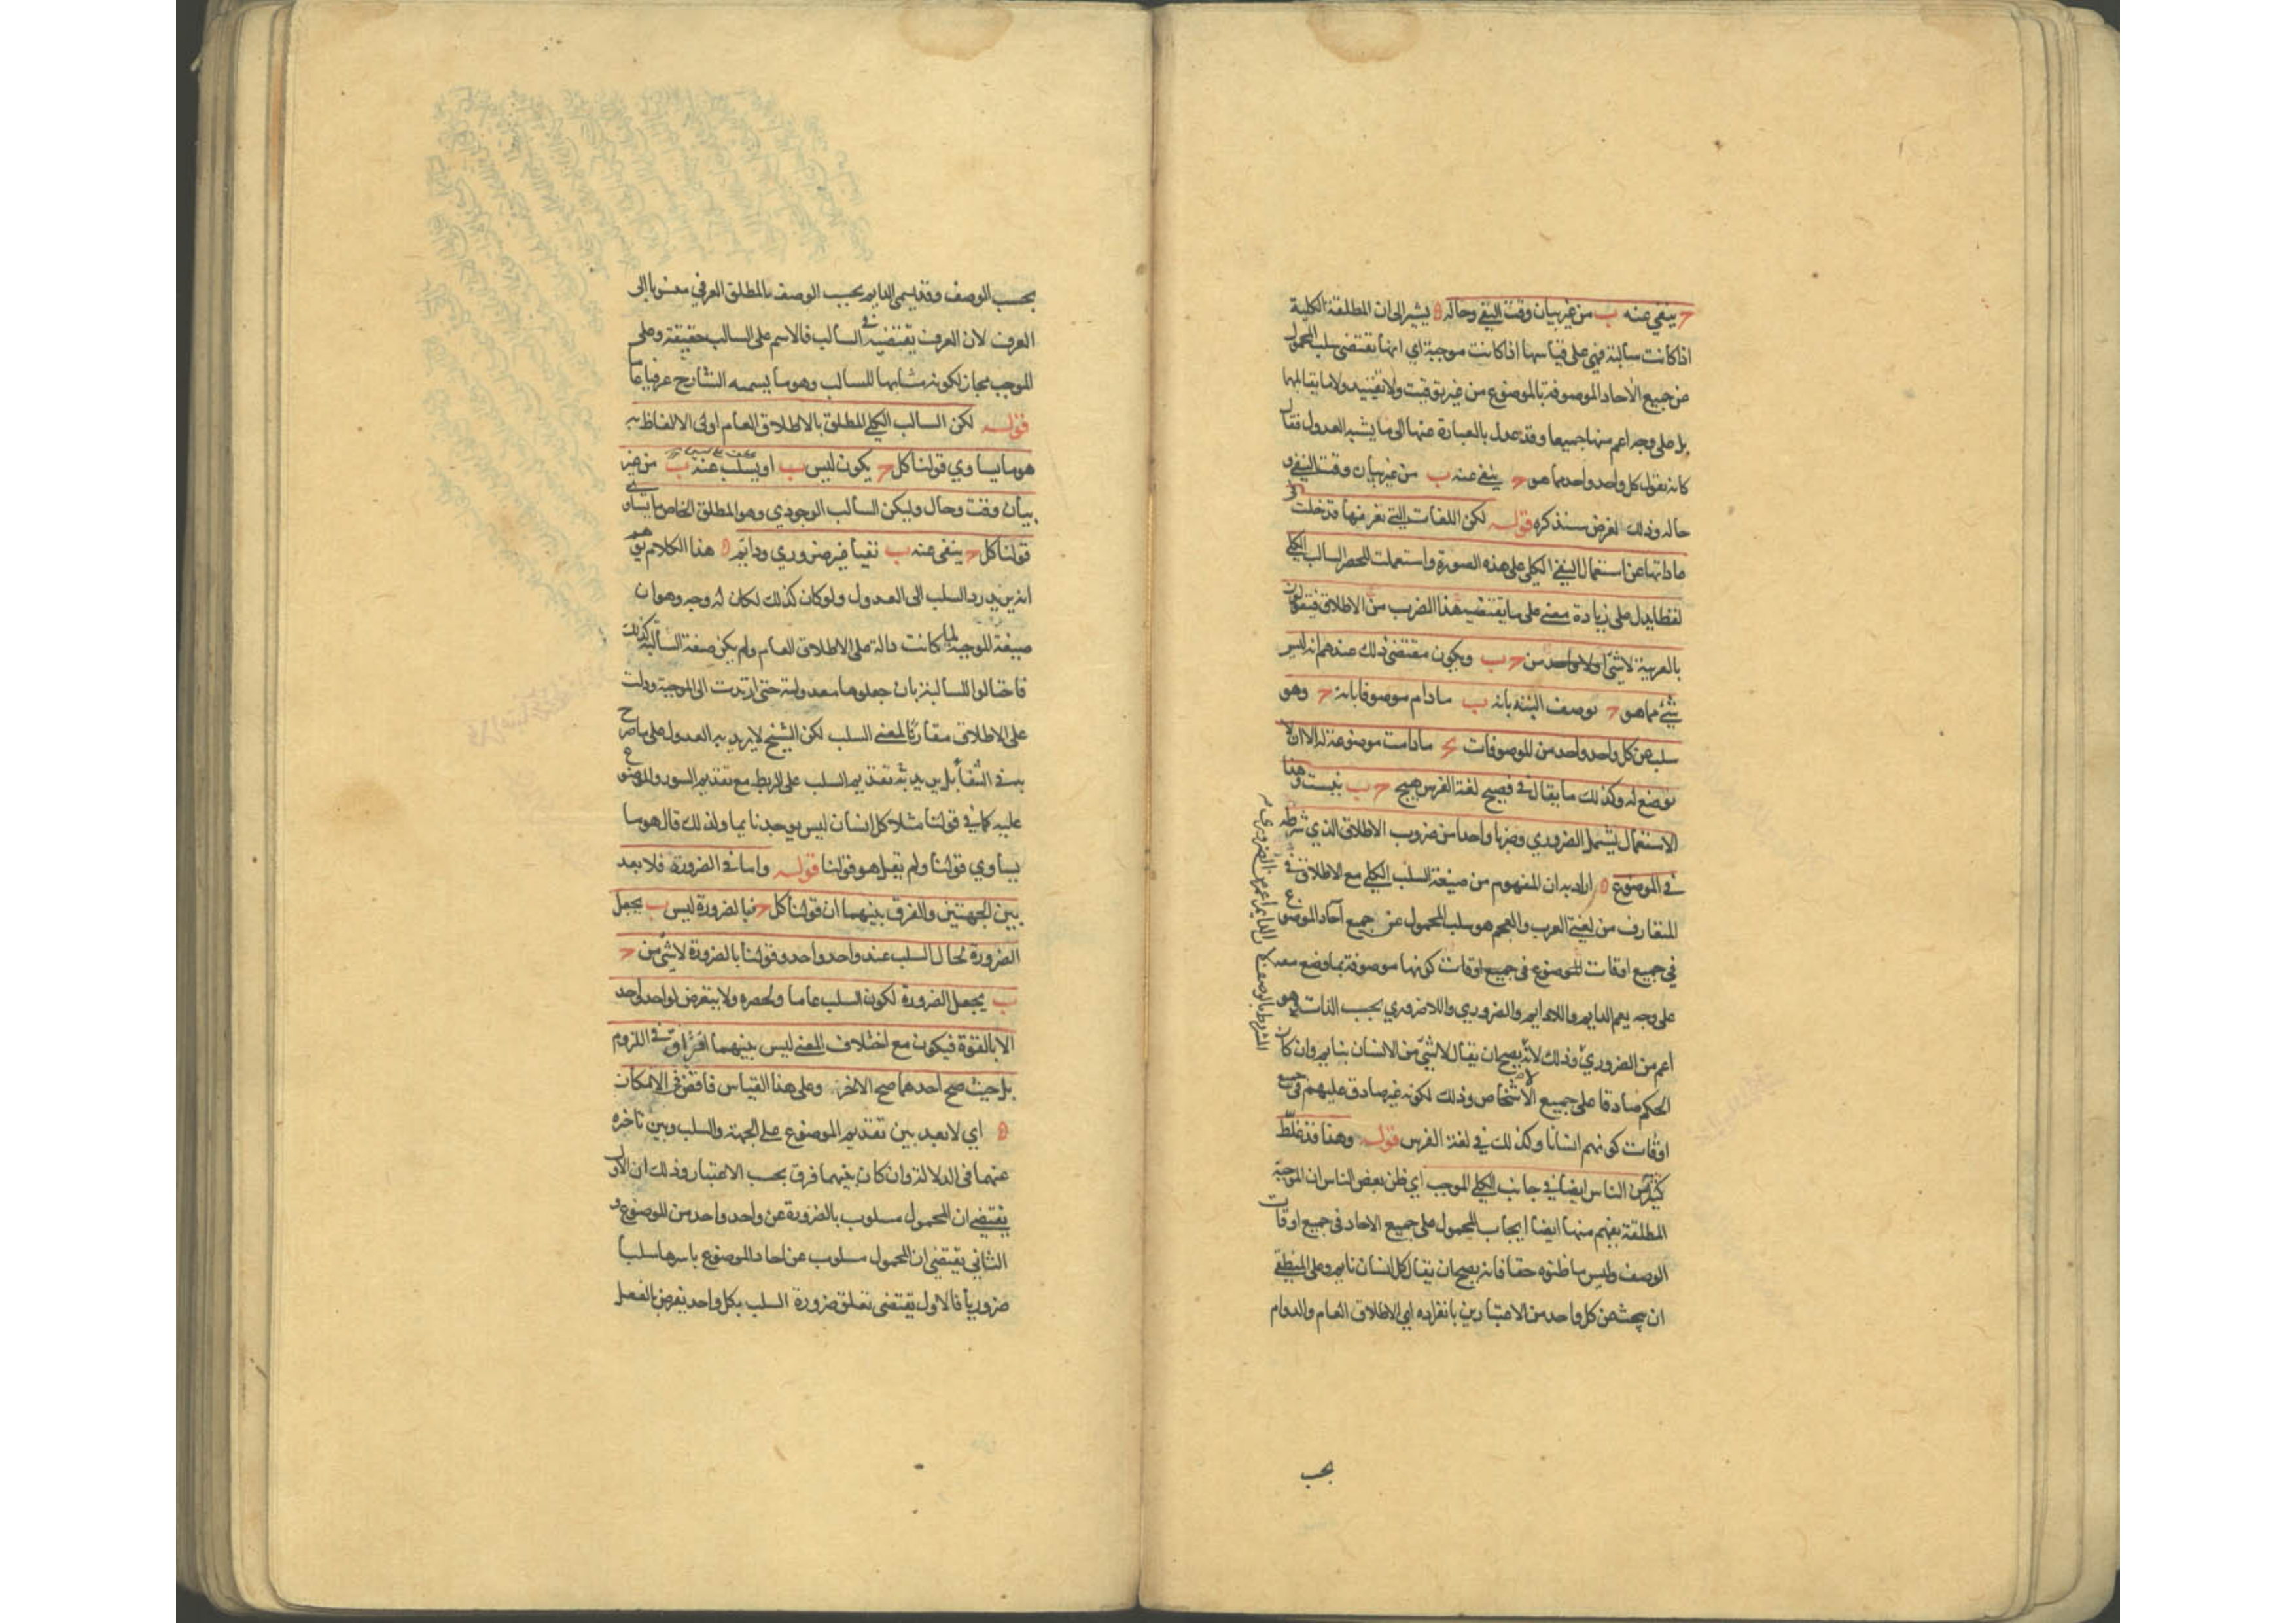 ح ينفي عنه ب من غير بيان وقت النفي وحاله ه يشير الى ان المطلقة الكلية
اذا كانت سالبة فهي على قياسها اذا كانت موجبة اي انها تقتضى سلب المحمول
عن جميع الآحاد الموصوفة بالموضوع من غير توقيت ولا تقييد ولا ما يقابلهما
بل على وجه اعم منهما جميعا وقد عدل بالعبارة عنها الى ما يشبه العدول فقال
كانه يقول كل واحد واحد مما هو ح ينفى عنه ب من غير بيان وقت النفي و
حاله وذلك لغرض سنذكره قوله لكن اللغات التي نعرفها قد خلت في
عاداتها عن استعمال النفي الكلى على هذه الصورة واستعملت للحصر السالب الكلي
لفظا يدل على زيادة معنى على ما يقتضيه هذا الضرب من الاطلاق فيقولون
بالعربية لا شئ ولا واحد من ح ب ويكون مقتضى ذلك عندهم انه ليس
شئ مما هو ح يوصف البتة بانه ب ما دام موصوفا بانه ح وهو
سلب عن كل واحد واحد من الموصوفات بح ما دامت موضوعة له الا ان لا
توضع له وكذلك ما يقال في فصيح لغة الفرس هيچ ح ب نيست وهذا
الاستعمال يشتمل الضروري وضربا واحدا من ضروب الاطلاق الذي شرطه
في الموضوع ه اراد به ان المفهوم من صيغة السلب الكلي مع الاطلاق في
المتعارف من لغتي العرب والعجم هو سلب المحمول عن جميع آحاد الموضوع
في جميع اوقات الموضوع في جميع اوقات كونها موصوفة بما وضع معه
على وجه يعم الدايم واللادايم والضروري واللاضروري بحسب الذات وهو
اعم من الضروري وذلك لانه يصح ان يقال لا شئ من الانسان بنايم وان كان
الحكم صادقا على جميع الاشخاص وذلك لكونه غير صادق عليهم في جميع
اوقات كونهم انسانا وكذلك في لغة الفرس قوله وهذا قد غلط
كثيرا من الناس ايضا في جانب الكلي الموجب اي ظن بعض الناس ان الموجبة
المطلقة يفهم منها ايضا ايجاب المحمول على جميع الآحاد في جميع اوقات
الوصف وليس ما ظنوه حقا فانه يصح ان يقال كل انسان نايم وعلى المنطقي
ان يبحث عن كل واحد من الاعتبارين بانفراده اي الاطلاق العام والدوام
بحسب
بحسب الوصف وقد يسمى الدايم بحسب الوصف بالمطلق العرفي منسوبا الى
العرف لان العرف يقتضيه في السالب فالاسم على السالب حقيقة وعلى
الموجب مجاز لكونه مشابها للسالب وهو ما يسميه الشارح عرفيا عاما
قوله لكن السالب الكلي المطلق بالاطلاق العام اولى الالفاظ به
هو ما يساوي قولنا كل ح يكون ليس ب او يسلب عنه ب من غير
بيان وقت وحال وليكن السالب الوجودي وهو المطلق الخاص ما يساوي
قولنا كل ح ينفى عنه ب نفيا غير ضروري ودايم ه هذا الكلام يوهم
انه يريد رد السلب الى العدول ولو كان كذلك لكان له وجه وهو ان
صيغة الموجبة لما كانت دالة على الاطلاق العام ولم يكن صيغة السالبة كذلك
فاحتالوا للسالبة بان جعلوها معدولة حتى ارتدت الى الموجبة ودلت
على الاطلاق مقارنا لمعنى السلب لكن الشيخ لا يريد به العدول على ما صرح
به في الشفا بل يريد به تقديم السلب على الربط مع تقديم السور والموضوع
عليه كما في قولنا مثلا كل انسان ليس يوجد نايما ولذلك قال هو ما
يساوي قولنا ولم يقل هو قولنا قوله واما في الضرورة فلا بعد
بين الجهتين والفرق بينهما ان قولنا كل ح فبالضرورة ليس ب يجعل
الضرورة لحال السلب عند واحد واحد وقولنا بالضرورة لا شئ من ح
ب يجعل الضرورة لكون السلب عاما ولحصره ولا يتعرض لواحد واحد
الا بالقوة فيكون مع اختلاف المعنى ليس بينهما افتراق في اللزوم
بل حيث صح احدهما صح الاخر وعلى هذا القياس فاقض في الامكان
ه اي لا بعد بين تقديم الموضوع على الجهة والسلب وبين تاخره
عنهما في الدلالة وان كان بينهما فرق بحسب الاعتبار وذلك ان الاول
يقتضي ان المحمول مسلوب بالضرورة عن واحد واحد من الموضوع و
الثاني يقتضي ان المحمول مسلوب عن آحاد الموضوع باسرها سلبا
ضروريا فالاول يقتضى تعلق ضرورة السلب بكل واحد يفرض بالفعل